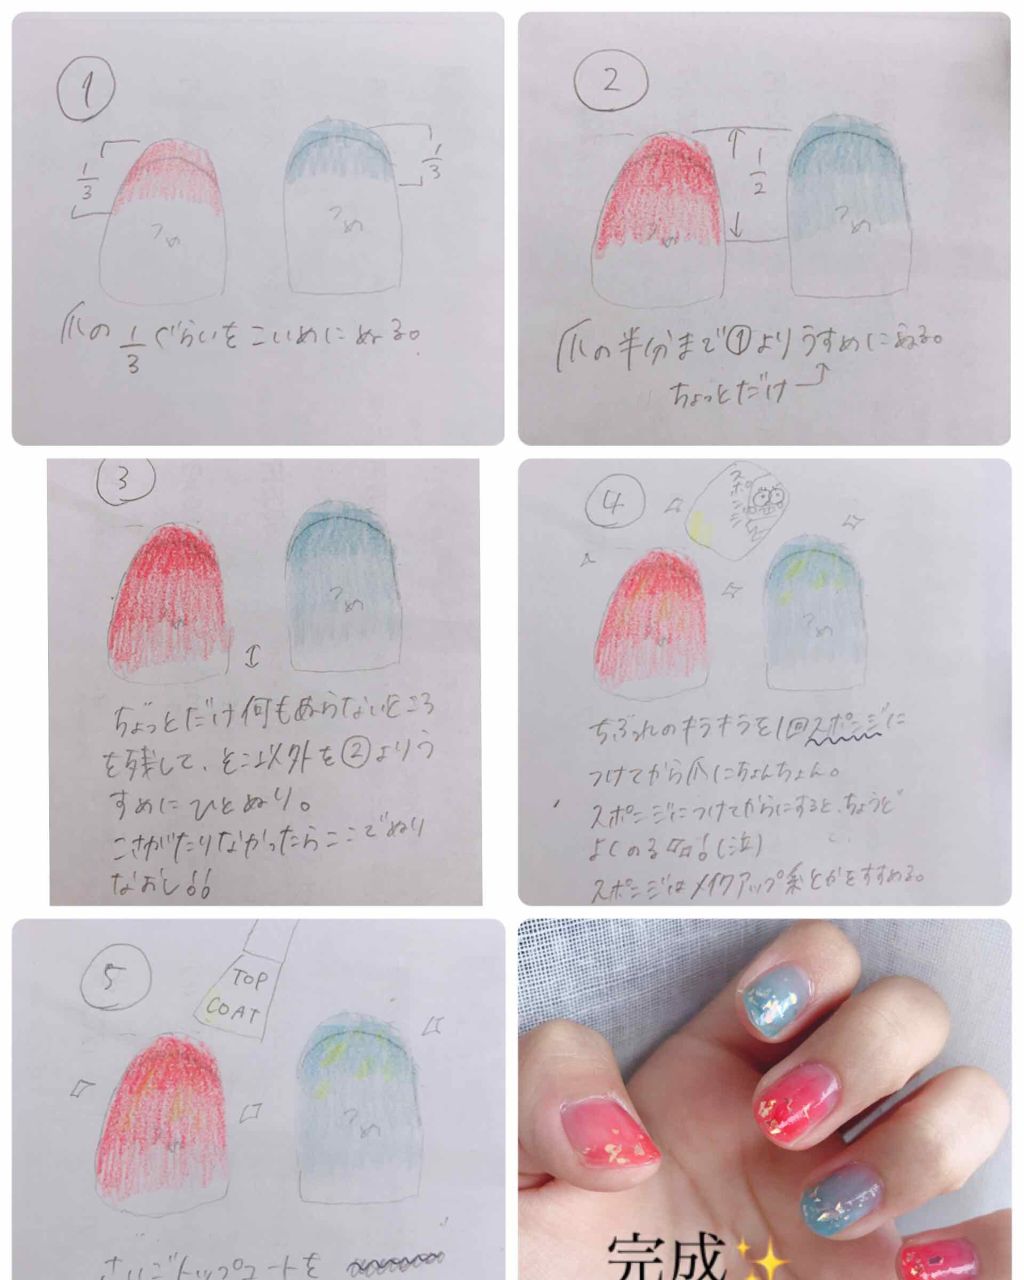 1
1/3
1/3
つめ
つめ
爪の1/3ぐらいをこいめにぬる。
2
1/2
つめ
つめ
爪の半分まで①よりうすめにぬる。
ちょっとだけ
3
つめ
つめ
ちょっとだけ何もぬらないところ
を残して、そこ以外を②よりう
すめにひとぬり。
こさがたりなかったらここでぬり
なおし!!
4
スポンジ
つめ
つめ
のキラキラを1回スポンジに
つけてから爪にちょんちょん。
スポンジにつけてからにすると、ちょうど
よくのる!(泣)
スポンジはメイクアップ系とかをすすめる。
5
TOP
COAT
つめ
つめ
さいごトップコートを
完成✨